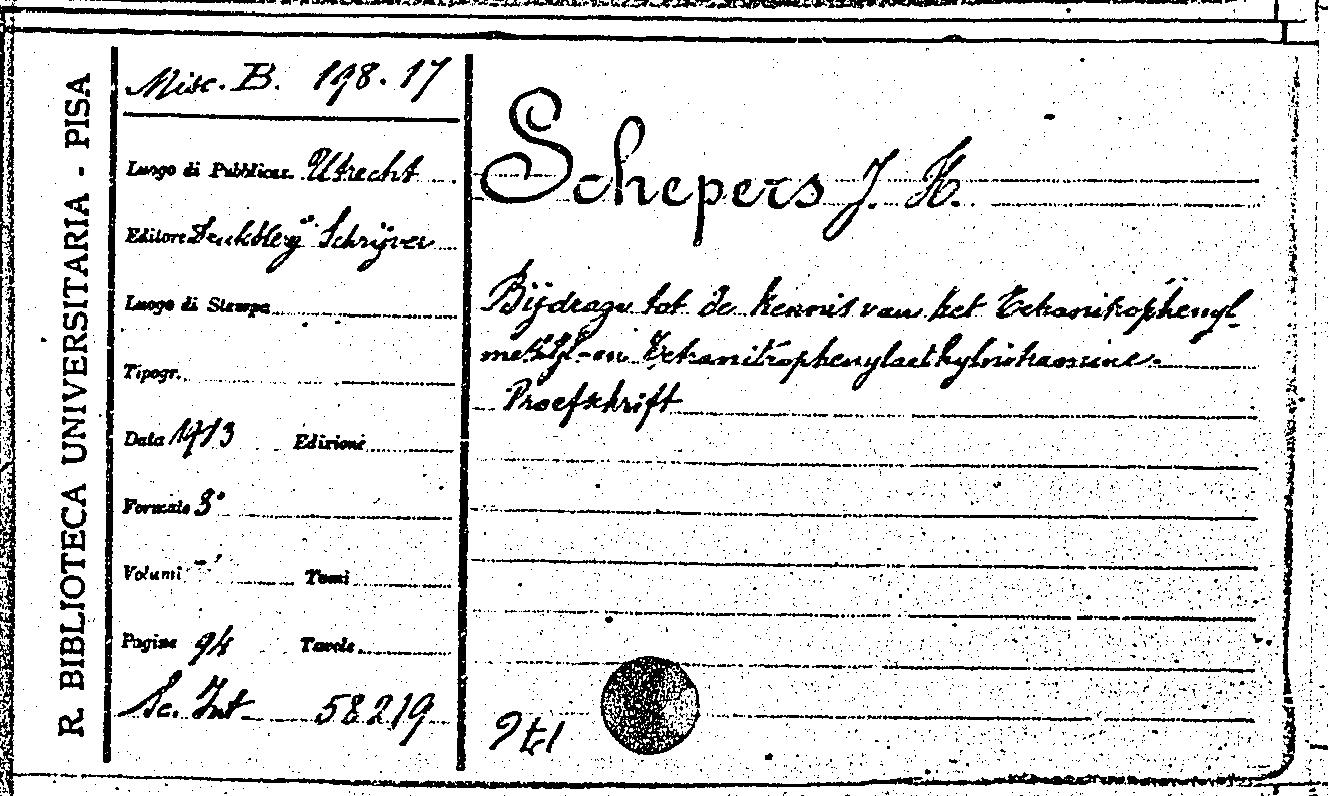 R. BIBLIOTECA UNIVERSITARIA - PISA
Misc. B. 198.17
Luogo di Pubblicaz. Utrecht
Editore Schrijver
Luogo di Stampa
Tipogr.
Data 1913 Edizione
Formato 8°
Volumi - Tomi
Pagine 94 Tavole
Sc. Int. 58219
Schepers J. H.
Bijdrage tot de kennis van het Tetranitrophenyl-
methyl- en Tetranitrophenylaethylnitramine.
Proefschrift